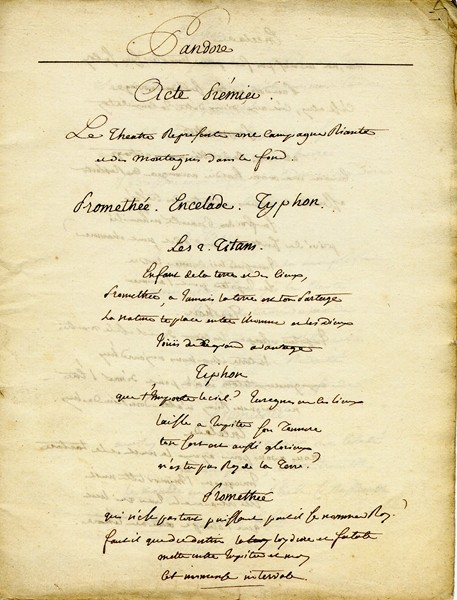 Pandore
Acte Prémier.
Le Theatre Represente une Campagne Riante
et des Montagnes dans le fond.
Promethée. Encelade. Typhon.
Les 2. Titans.
Enfant de la terre et des Cieux,
Promethée, a Jamais la terre est ton Partage
La nature te place entre l'homme et les Dieux
de ce grand avantage
Typhon
que t'Importe le ciel? Tu regnes en ces lieux
laisse a Jupiter son Tonnere
ton sort est aussi glorieux
n'es tu pas Roy de la Terre?
Promethée
qui n'est pas tout puissant peut il se nommer Roy?
faut il que le destin la loy dure et fatale
mette entre Jupiter et moy
Cet immense intervale